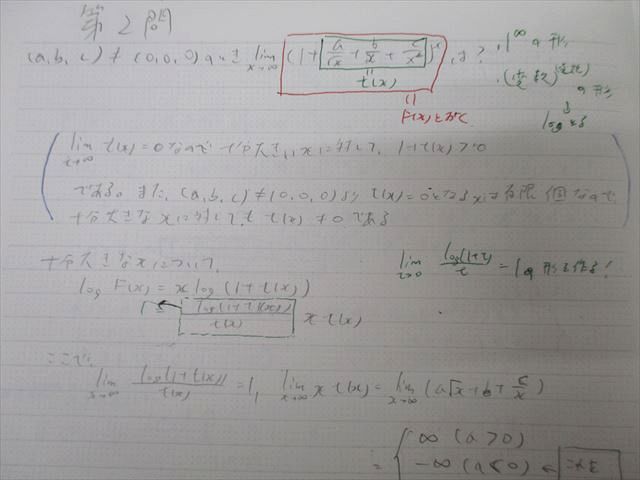 第2問
(a, b, c) ≠ (0, 0, 0) のとき lim x→∞ (1 + a/√x + b/x + c/x²)^x は?
t(x)
F(x)とおく
・1^∞ の形
の形
logとる
lim x→∞ t(x) = 0 なので 十分大きい x に対して, 1+t(x) > 0
である。また, (a, b, c) ≠ (0, 0, 0) より t(x) = 0 となる x は有限個なので
十分大きな x に対しても t(x) ≠ 0 である
十分大きな x について,
log F(x) = x log (1 + t(x))
= log(1+t(x))/t(x) x t(x)
1
lim t→0 log(1+t)/t = 1 の形を作る!
ここで,
lim x→∞ log(1+t(x))/t(x) = 1, lim x→∞ x t(x) = lim x→∞ (a√x + b + c/x)
= { ∞ (a > 0)
-∞ (a < 0) ←